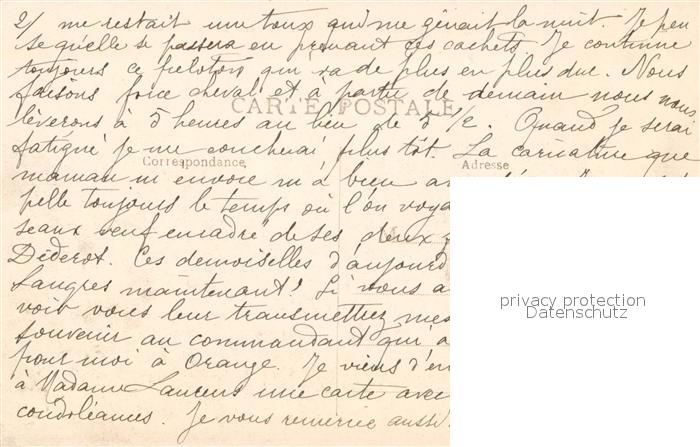 2/ me restait une toux qui me gênait la nuit. Je pen
se qu'elle se passera en prenant ces cachets. Je continue
toujours ce peloton qui va de plus en plus dur. Nous
faisons force cheval et a partir de demain nous nous
CARTE POSTALE
lèverons à 5 heures au lieu de 5 1/2. Quand je serai
fatigué je me coucherai plus tôt. La caricature que
Correspondance
Adresse
maman m'envoie m'a bien am
pelle toujours le temps où l'on voya
seaux veuf encadré de ses deux
Diderot. Ces demoiselles d'aujourd
Langres maintenant! Si vous a
voir vous leur transmettrez mes
souvenir au commandant qui a
pour moi à Orange. Je viens d'en
à Madame Laurens une carte avec
condoléances. Je vous remercie aussi
privacy protection
Datenschutz